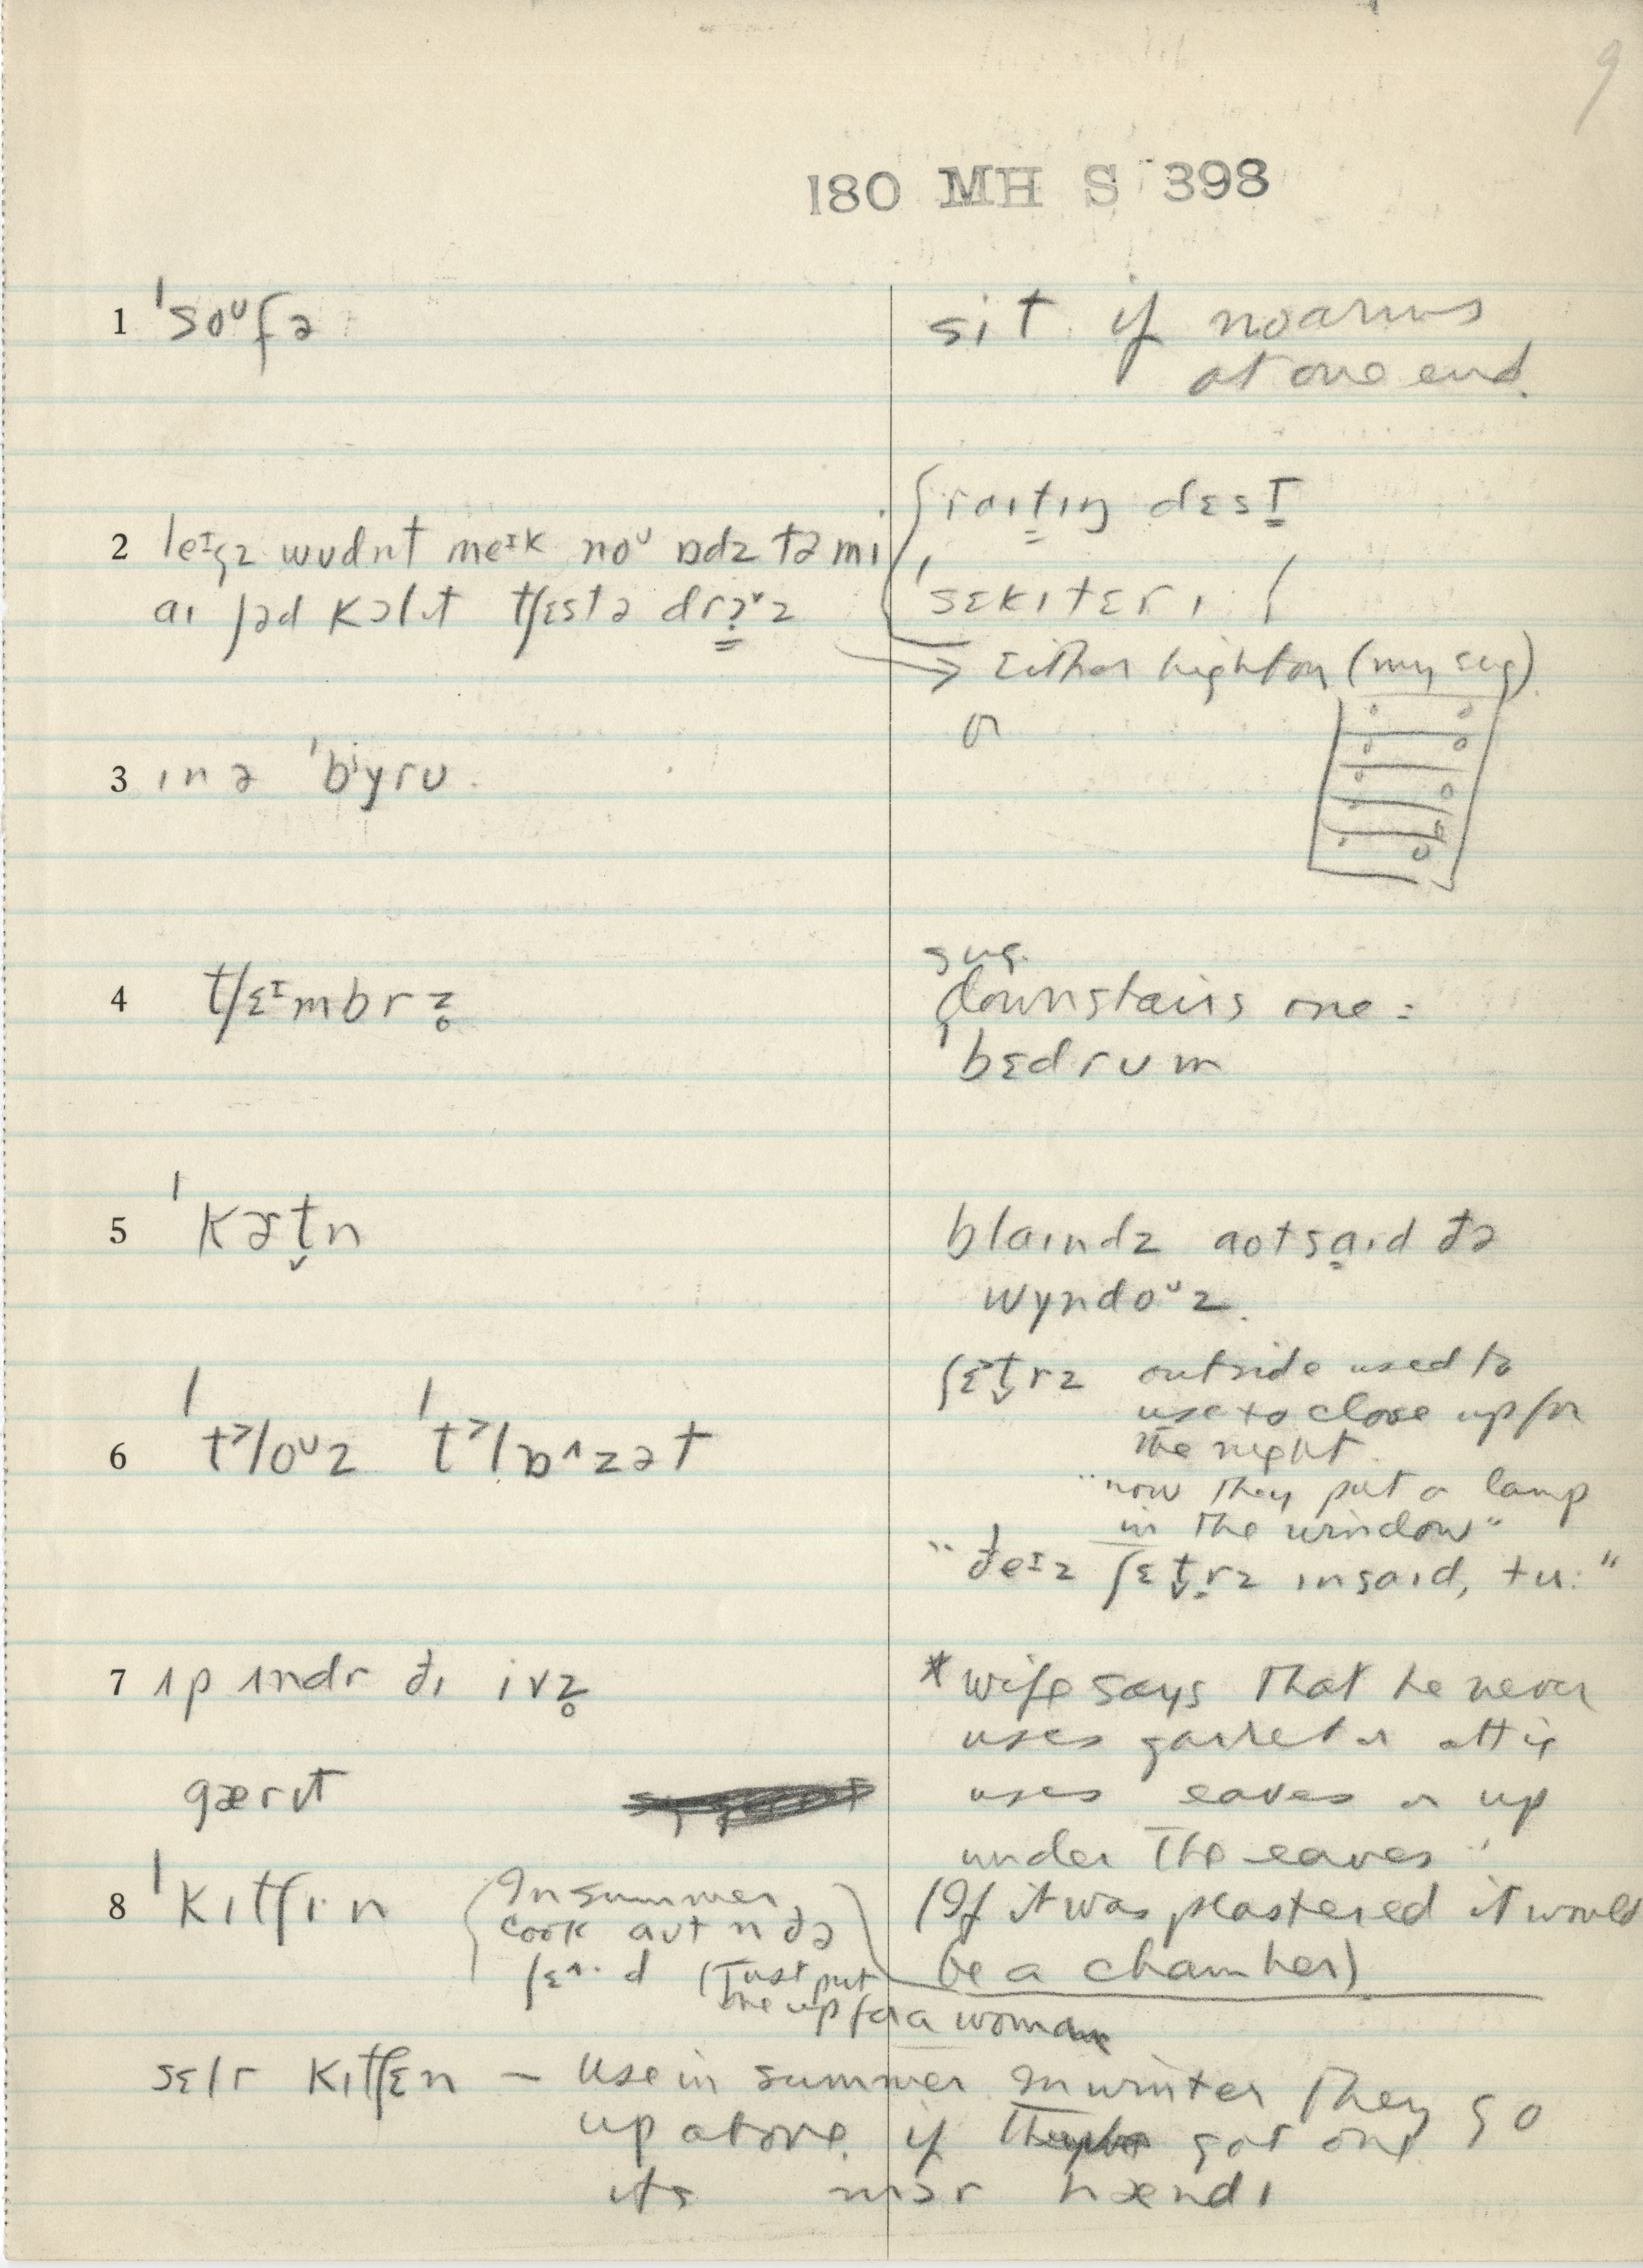 9
180 MH S 398
1 ˈsoᶷfə
sit if no arms
at one end.
2 wudnt meɪk noᶷ ɒdz tə mi
aɪ ʃəd kɔl ɪt tʃɛstə
raɪtɪŋ dɛsɪ
ˈsɛkɪtɛrɪ
→ Either high or (my sug)
or
3 ɪn ə ˈbʲyru
4 tʃɛᶦmbrz̥
sug.
downstairs one:
ˈbɛdrum
5 ˈkɚt̬n
blaɪndz aʊtsaɪd ðə
wyndoᶷz.
6 ˈt˃loᶷz ˈt˃lɒ^zət
ʃɛt̬rz outside used to
use to close up for
the night.
"now they put a lamp
in the window"
"ðeᶦz ʃɛt̬rz ɪnsaɪd, tu:"
7 ʌp ʌndr ðɪ ivz̥
gærɪt
*wife says that he never
uses garret or attic
uses eaves or up
under the eaves"
(If it was plastered it would
be a chamber)
8 ˈkɪtʃɪn
In summer
cook aʊt n ðə
ʃɛ^·d (Just put
one up for a woman
sɛlr kɪtʃɛn – use in summer In winter they go
up above if got one
its mɔr hændɪ